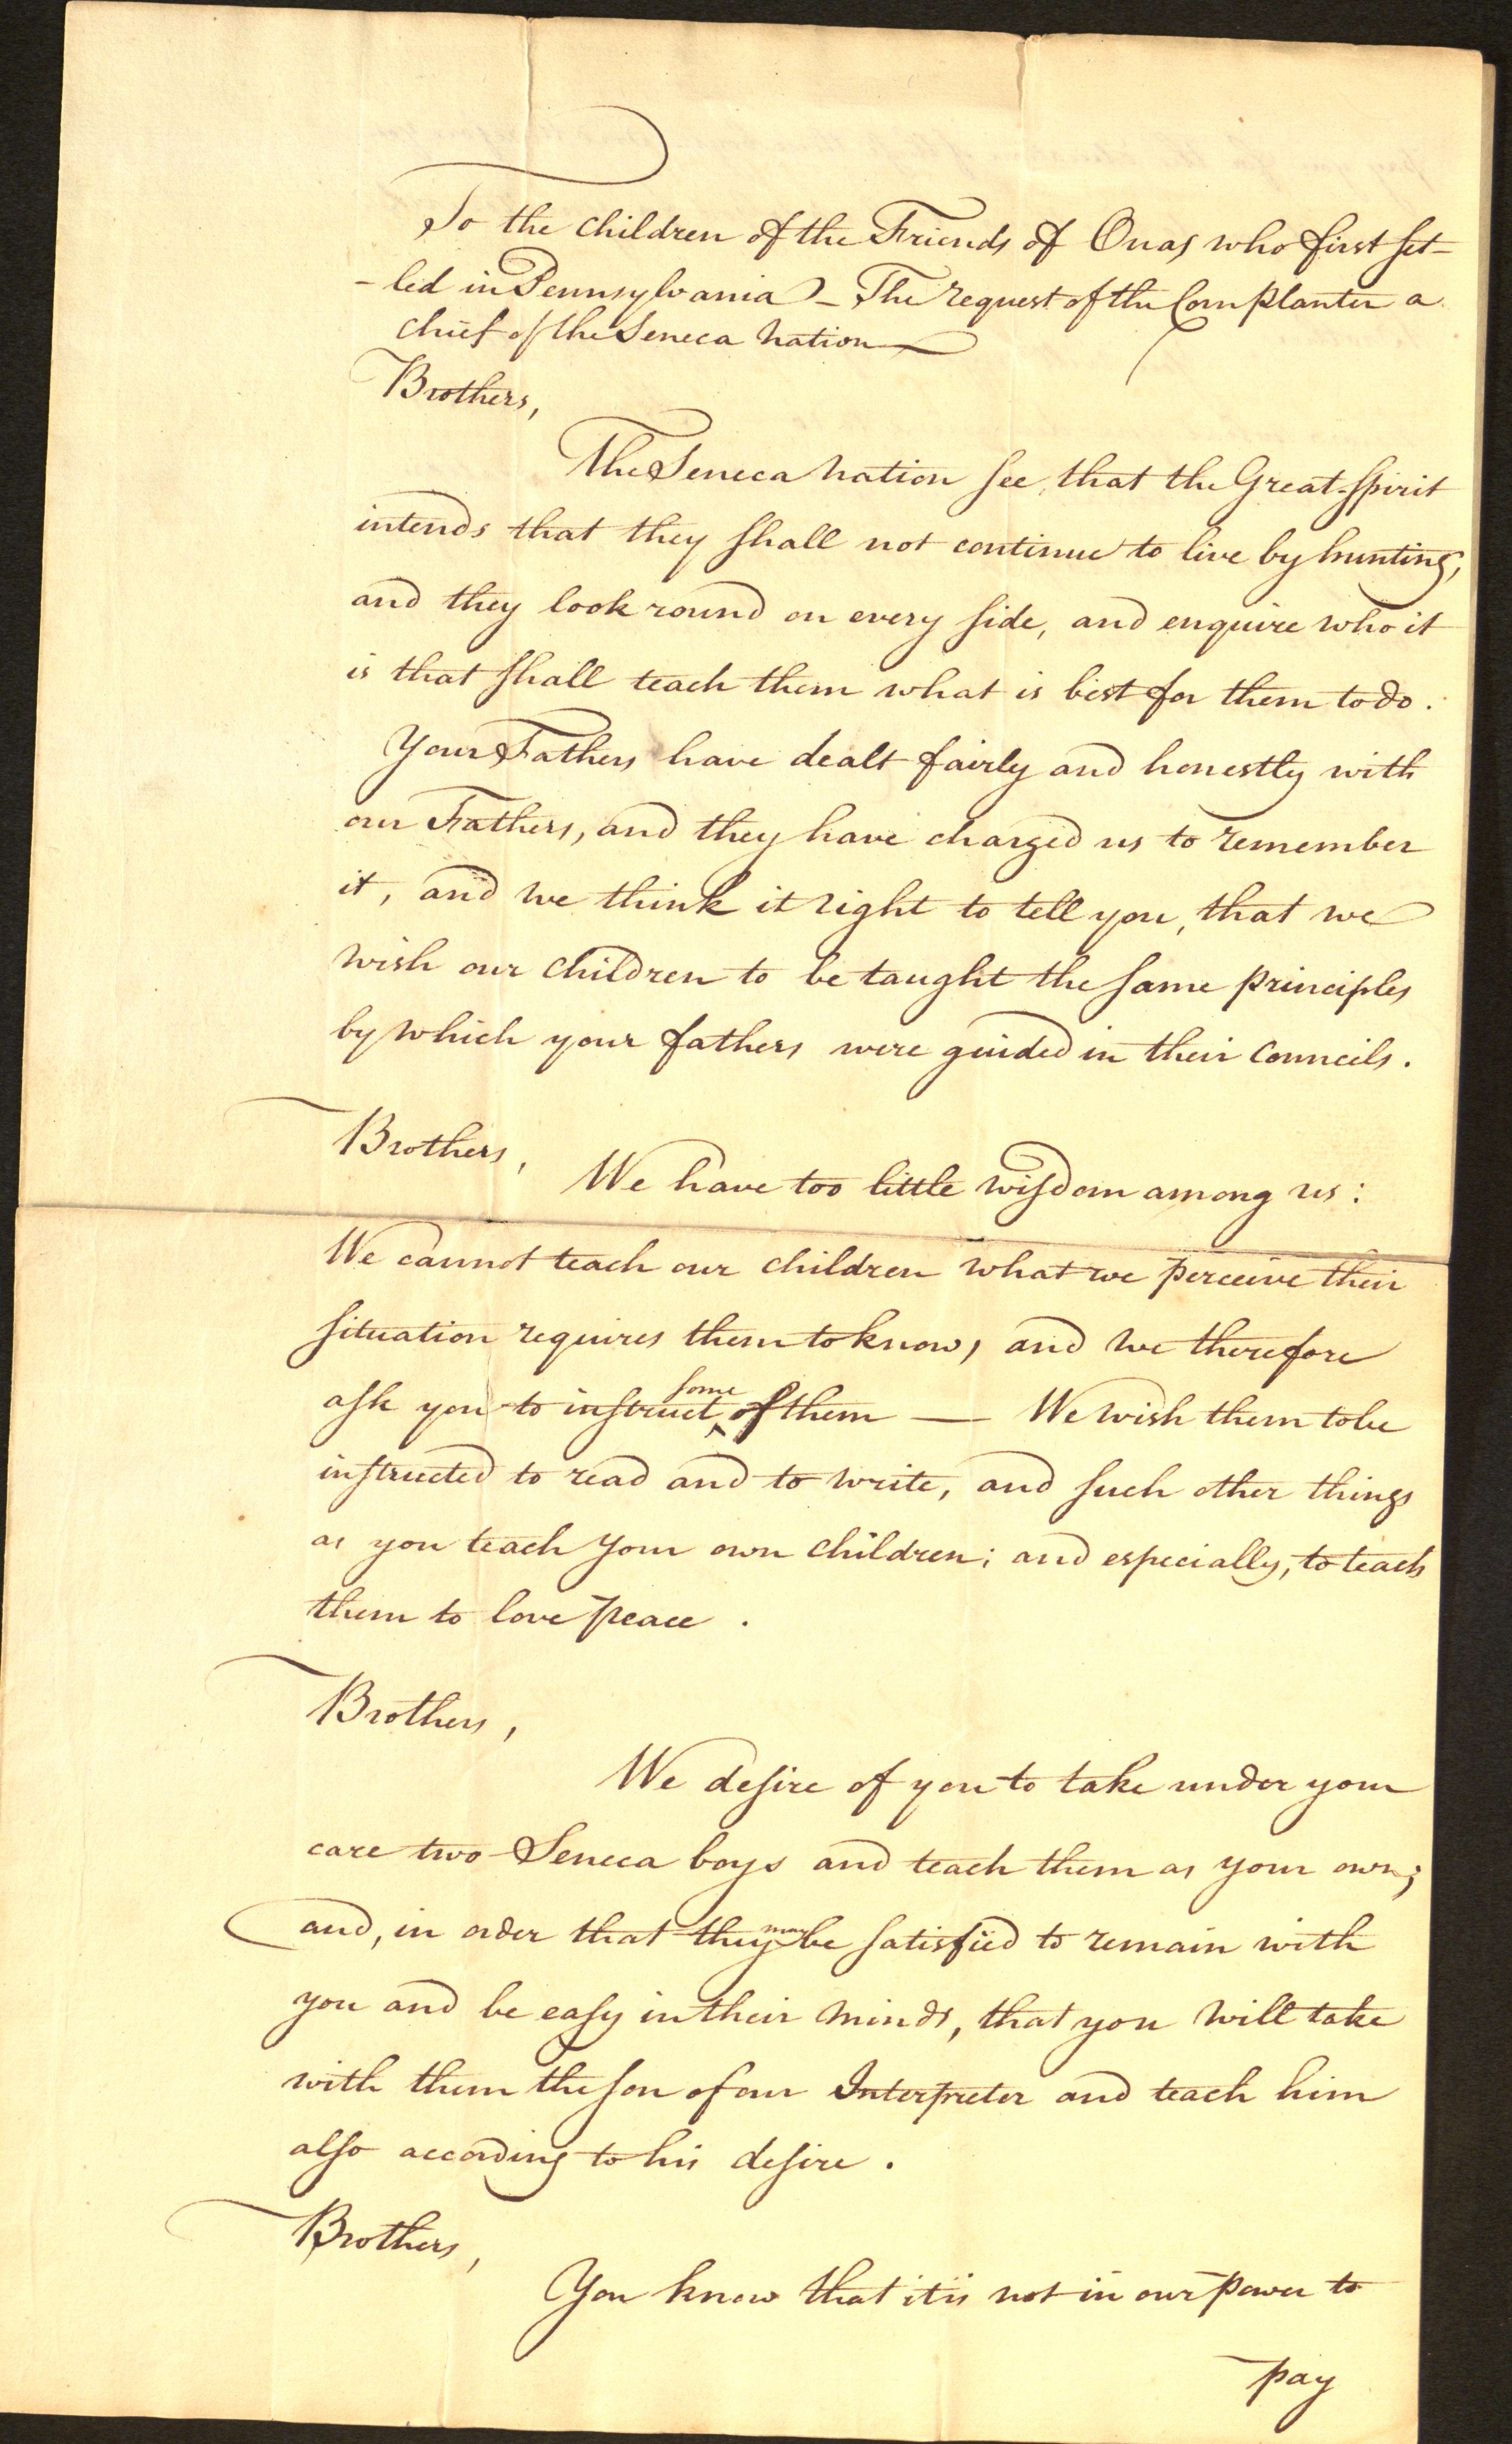 To the children of the Friends of Onas who first set-
-led in Pennsylvania - The request of the Cornplanter a
chief of the Seneca nation
Brothers,
The Seneca nation see, that the Great Spirit
intends that they shall not continue to live by hunting,
and they look round on every side, and enquire who it
is that shall teach them what is best for them to do.
Your Fathers have dealt fairly and honestly with
our Fathers, and they have charged us to remember
it, and we think it right to tell you, that we
wish our children to be taught the same principles
by which your fathers were guided in their Councils.
Brothers,
We have too little wisdom among us:
We cannot teach our children what we perceive their
situation requires them to know, and we therefore
ask you to instruct some of them — We wish them to be
instructed to read and to write, and such other things
as you teach your own children; and especially, to teach
them to love peace.
Brothers,
We desire of you to take under your
care two Seneca boys and teach them as your own;
and, in order that they may be satisfied to remain with
you and be easy in their minds, that you will take
with them the son of our Interpreter and teach him
also according to his desire.
Brothers,
You know that it is not in our power to
pay